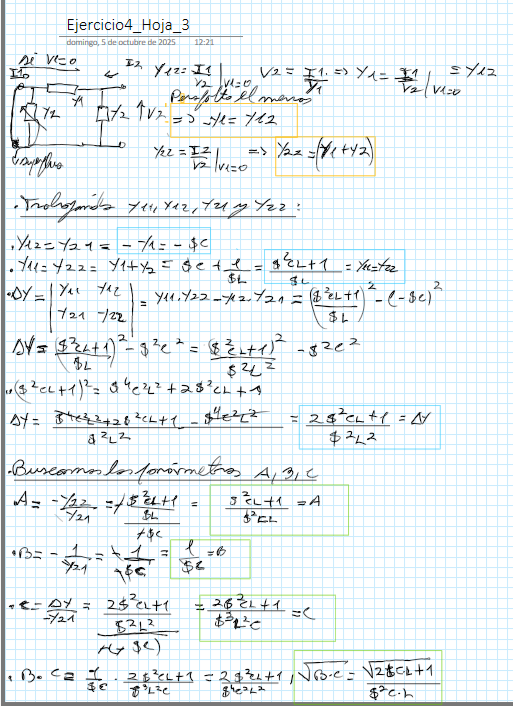 Ejercicio4_Hoja_3
domingo, 5 de octubre de 2025 12:21
Si V1=0
I1 I2 Y12 = I1/V2 |V1=0 V2 = I1/Y1 => Y1 = I1/V2 |V1=0 = Y12
Y2 Y1 Y2 ↑V2
=> -Y1 = Y12
Superfluo
Y22 = I2/V2 |V1=0 => Y22 = (Y1+Y2)
. Trabajando Y11, Y12, Y21 y Y22 :
. Y12 = Y21 = -Y1 = -$C
. Y11 = Y22 = Y1+Y2 = $C + 1/$L = ($²CL+1)/$L = Y11=Y22
. ΔY = |Y11 Y12 Y21 -Y22| = Y11.Y22 - Y12.Y21 = (($²CL+1)/$L)² - (-$C)²
ΔY = (($²CL+1)/$L)² - $²C² = ($²CL+1)²/$²L² - $²C²
. ($²CL+1)² = $⁴C²L² + 2$²CL + 1
ΔY = ($⁴C²L²+2$²CL+1 - $⁴C²L²)/$²L² = (2$²CL+1)/$²L² = ΔY
. Buscamos los parámetros A, B, C
. A = -Y22/Y21 = +(($²CL+1)/$L)/+$C = ($²CL+1)/$²CL = A
. B = -1/Y21 = -1/-$C = 1/$C = B
. C = ΔY/-Y21 = ((2$²CL+1)/$²L²)/(+(+$C)) = (2$²CL+1)/$³L²C = C
. B.C = 1/$C . (2$²CL+1)/$³L²C = (2$²CL+1)/$⁴C²L² , √B.C = √(2$CL+1)/$²C.L